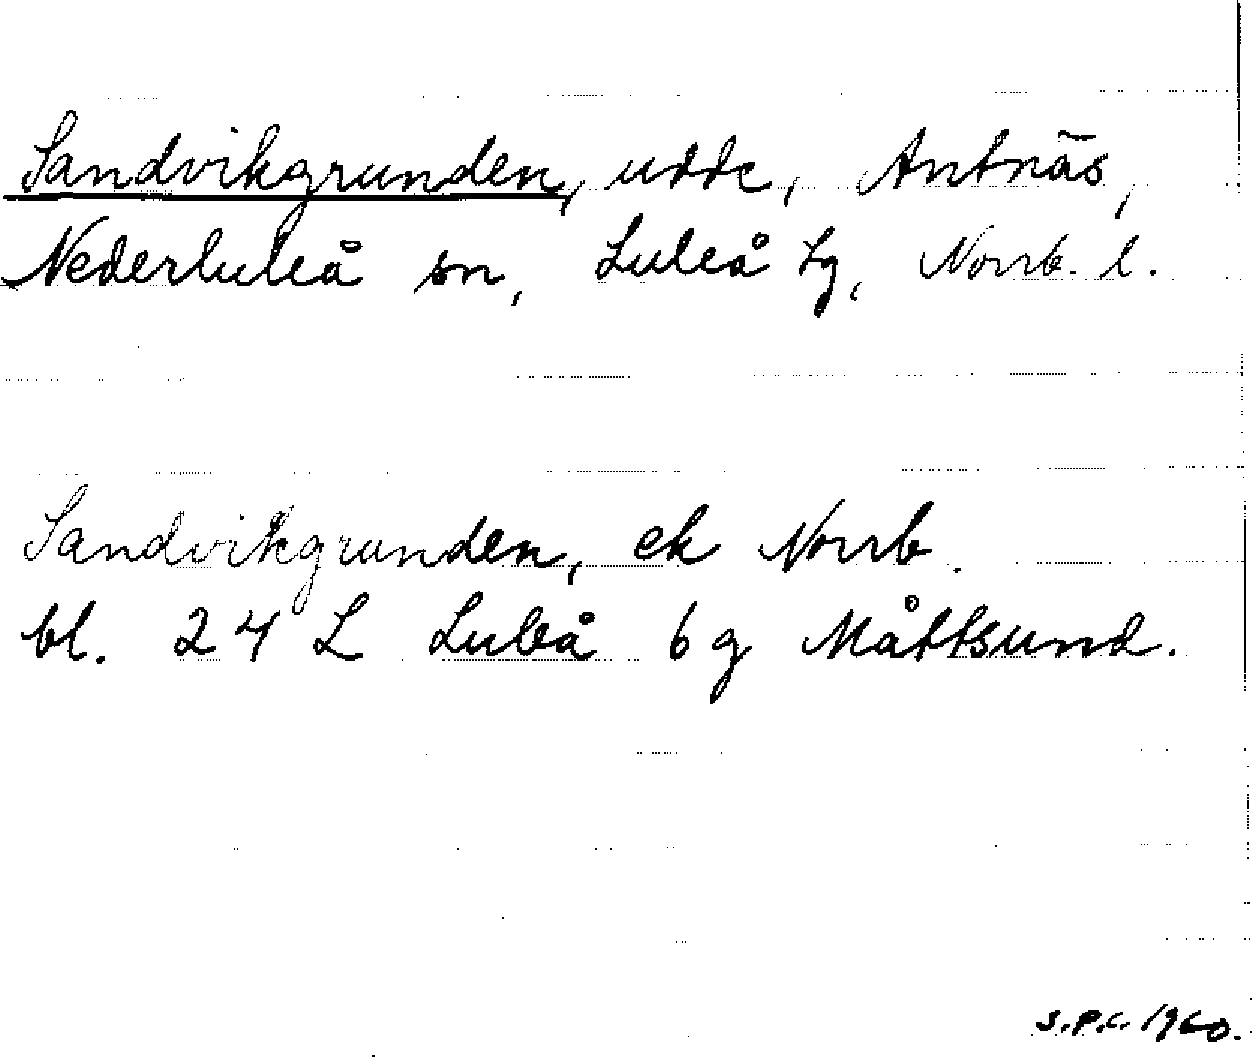 Sandvikgrunden, udde, Antnäs,
Nederluleå sn, Luleå tg, Norrb. l.
Sandvikgrunden, ek Norrb.
bl. 24 L Luleå 6 g Måttsund.
S.P.C. 1960.